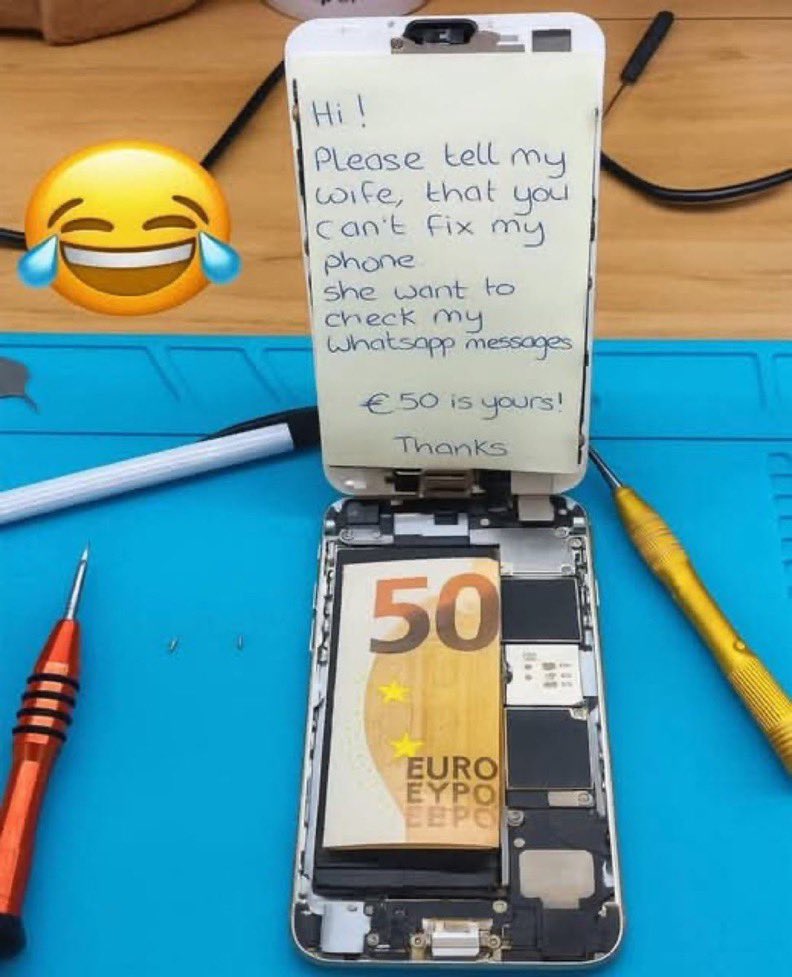 Hi !
Please tell my
wife, that you
can't fix my
phone
she want to
check my
whatsapp messages
€50 is yours!
Thanks
50
EURO
ΕΥΡΩ
ЕВРО